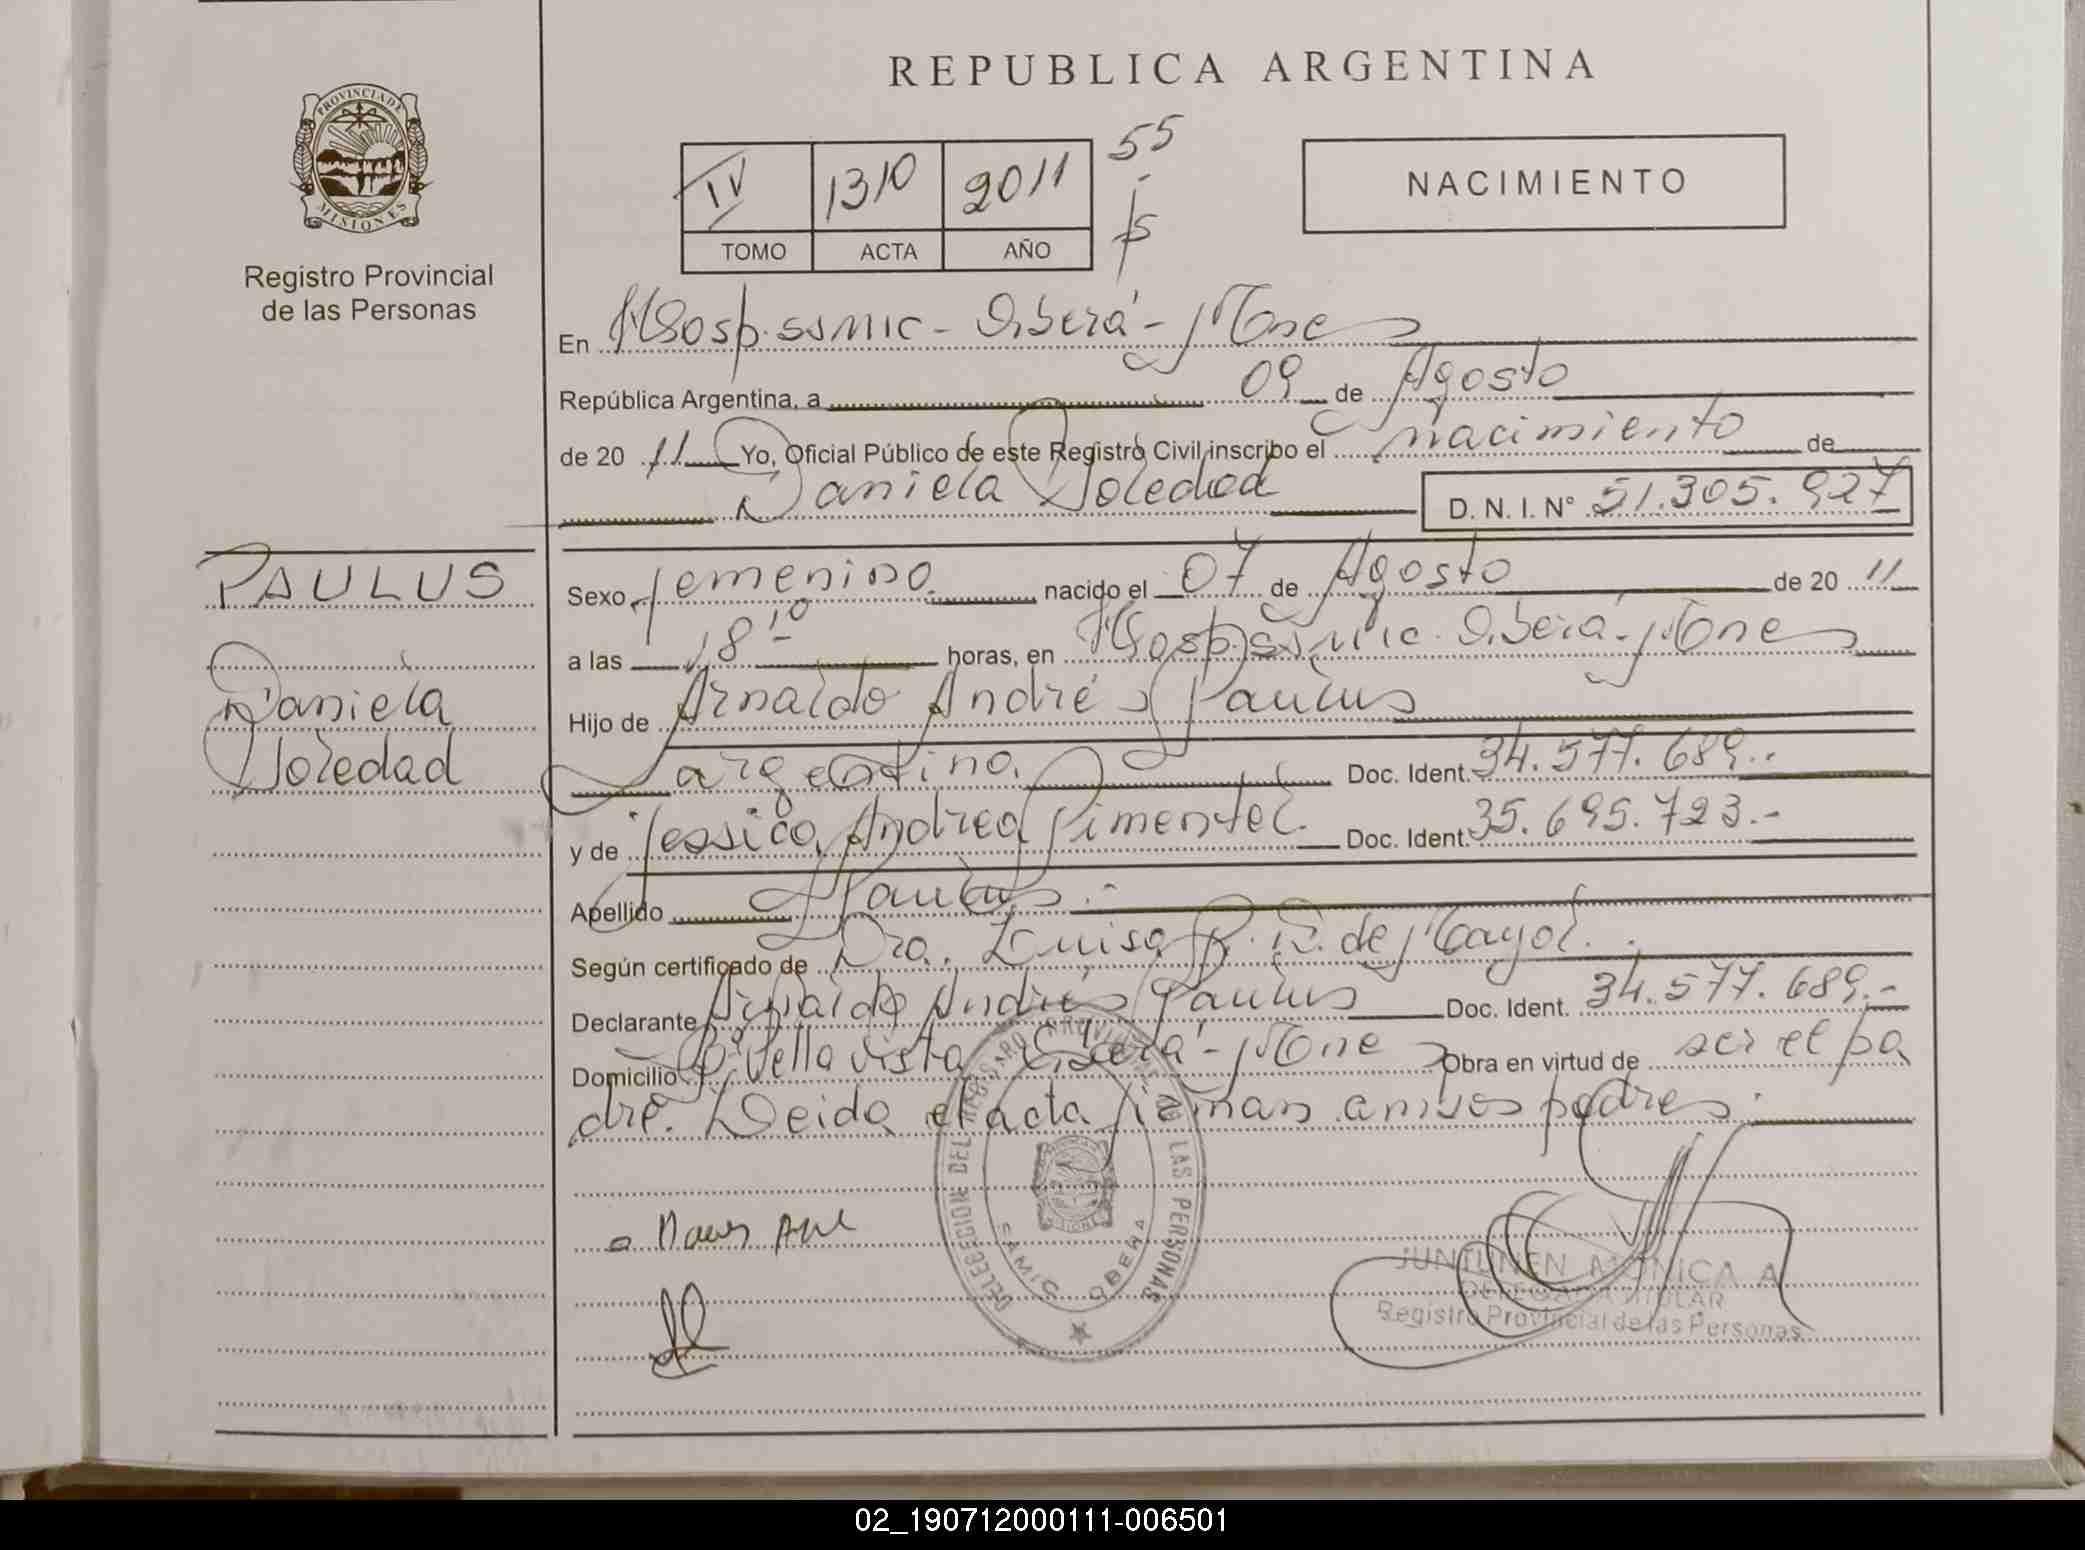 REPUBLICA ARGENTINA
PROVINCIA DE
MISIONES
Registro Provincial
de las Personas
IV 1310 2011 55
TOMO ACTA AÑO
NACIMIENTO
En Hosp. SSMIC - Oberá - Mnes
República Argentina, a 09 de Agosto
de 20 11 Yo, Oficial Público de este Registro Civil inscribo el nacimiento de
Daniela Soledad D. N. I. N° 51.305.927
PAULUS
Daniela
Soledad
Sexo femenino nacido el 07 de Agosto de 20 11
a las 18 10 horas, en Hosp. SSMIC. Oberá - Mnes
Hijo de Arnaldo Andrés Paulus
argentino. Doc. Ident. 34.577.689.-
y de Jessica Andrea Pimentel. Doc. Ident. 35.695.723.-
Apellido Paulus.-
Según certificado de Dra. Luisa R. D. de Mayol.
Declarante Arnaldo Andrés Paulus Doc. Ident. 34.577.689.-
Domicilio Bº Bella Vista Oberá - Mnes Obra en virtud de ser el pa
dre. Leida el acta firman ambos padres.
DELEGACION DEL REGISTRO PROVINCIAL DE LAS PERSONAS
SAMIC OBERA
JUNTUNEN MONICA A
DELEGADA TITULAR
Registro Provincial de las Personas
02_190712000111-006501